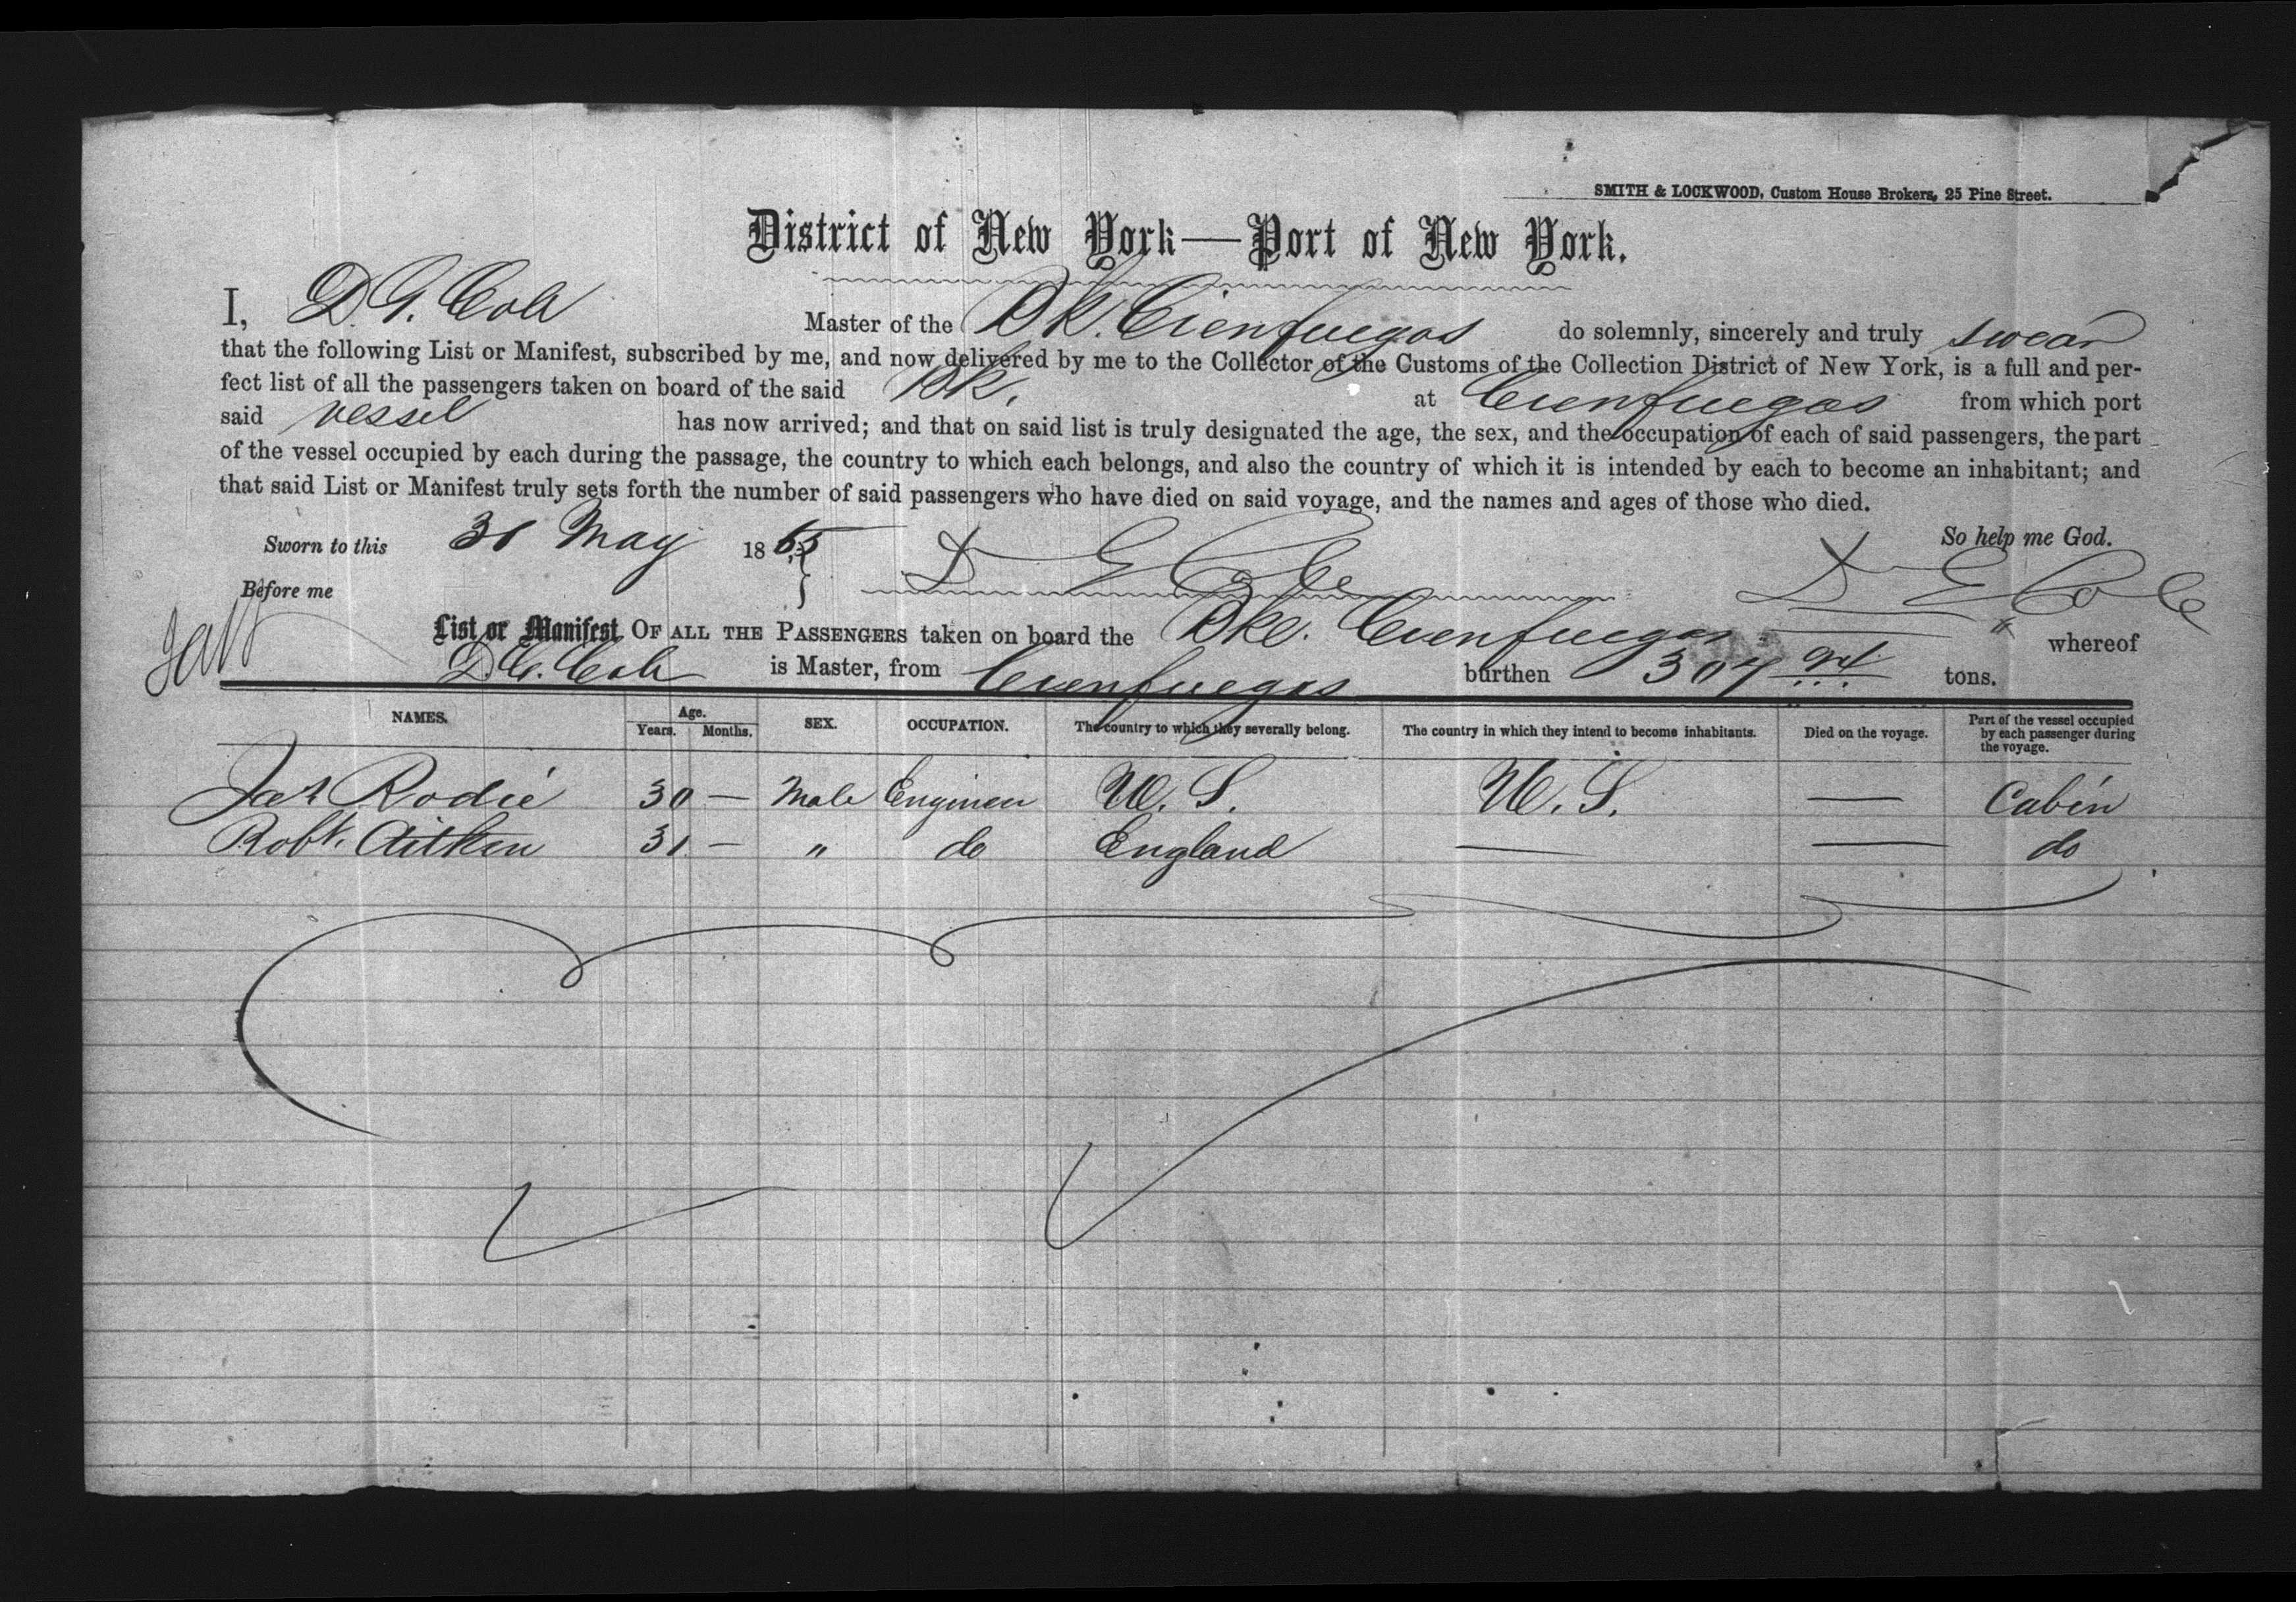 SMITH & LOCKWOOD, Custom House Brokers, 25 Pine Street.
District of New York—Port of New York.
I, D. G. Cole Master of the Bk. Cienfuegos do solemnly, sincerely and truly swear
that the following List or Manifest, subscribed by me, and now delivered by me to the Collector of the Customs of the Collection District of New York, is a full and per-
fect list of all the passengers taken on board of the said Bk. at Cienfuegos from which port
said vessel has now arrived; and that on said list is truly designated the age, the sex, and the occupation of each of said passengers, the part
of the vessel occupied by each during the passage, the country to which each belongs, and also the country of which it is intended by each to become an inhabitant; and
that said List or Manifest truly sets forth the number of said passengers who have died on said voyage, and the names and ages of those who died.
Sworn to this 31 May 1865 D E Cole So help me God.
Before me D E Cole
List or Manifest OF ALL THE PASSENGERS taken on board the Bke. Cienfuegos whereof
D. E. Cole is Master, from Cienfuegos burthen 307 tons.
NAMES. Age. Years. Months. SEX. OCCUPATION. The country to which they severally belong. The country in which they intend to become inhabitants. Died on the voyage. Part of the vessel occupied by each passenger during the voyage.
Jas Rodie 30 — Male Engineer U. S. U. S. — Cabin
Robt. Aitken 31 — " do England — — do